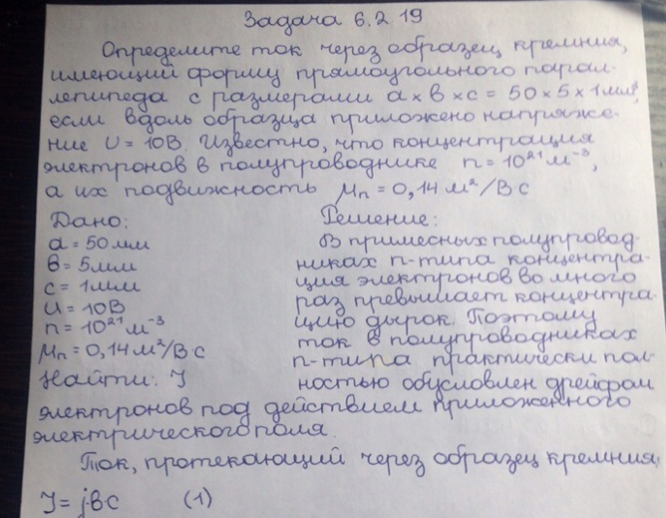 Задача 6.2.19
Определите ток через образец кремния,
имеющий форму прямоугольного парал-
лепипеда с размерами а×в×с = 50×5×1мм³,
если вдоль образца приложено напряже-
ние U = 10В. Известно, что концентрация
электронов в полупроводнике n = 10²¹ м⁻³,
а их подвижность μₙ = 0,14 м²/В с
Дано: Решение:
а = 50 мм В примесных полупровод-
в = 5мм никах n-типа концентра-
с = 1мм ция электронов во много
U = 10В раз превышает концентра-
n = 10²¹ м⁻³ цию дырок. Поэтому
μₙ = 0,14 м²/В с ток в полупроводниках
n-типа практически пол-
Найти: J ностью обусловлен дрейфом
электронов под действием приложенного
электрического поля.
Ток, протекающий через образец кремния,
J = j·вс (1)